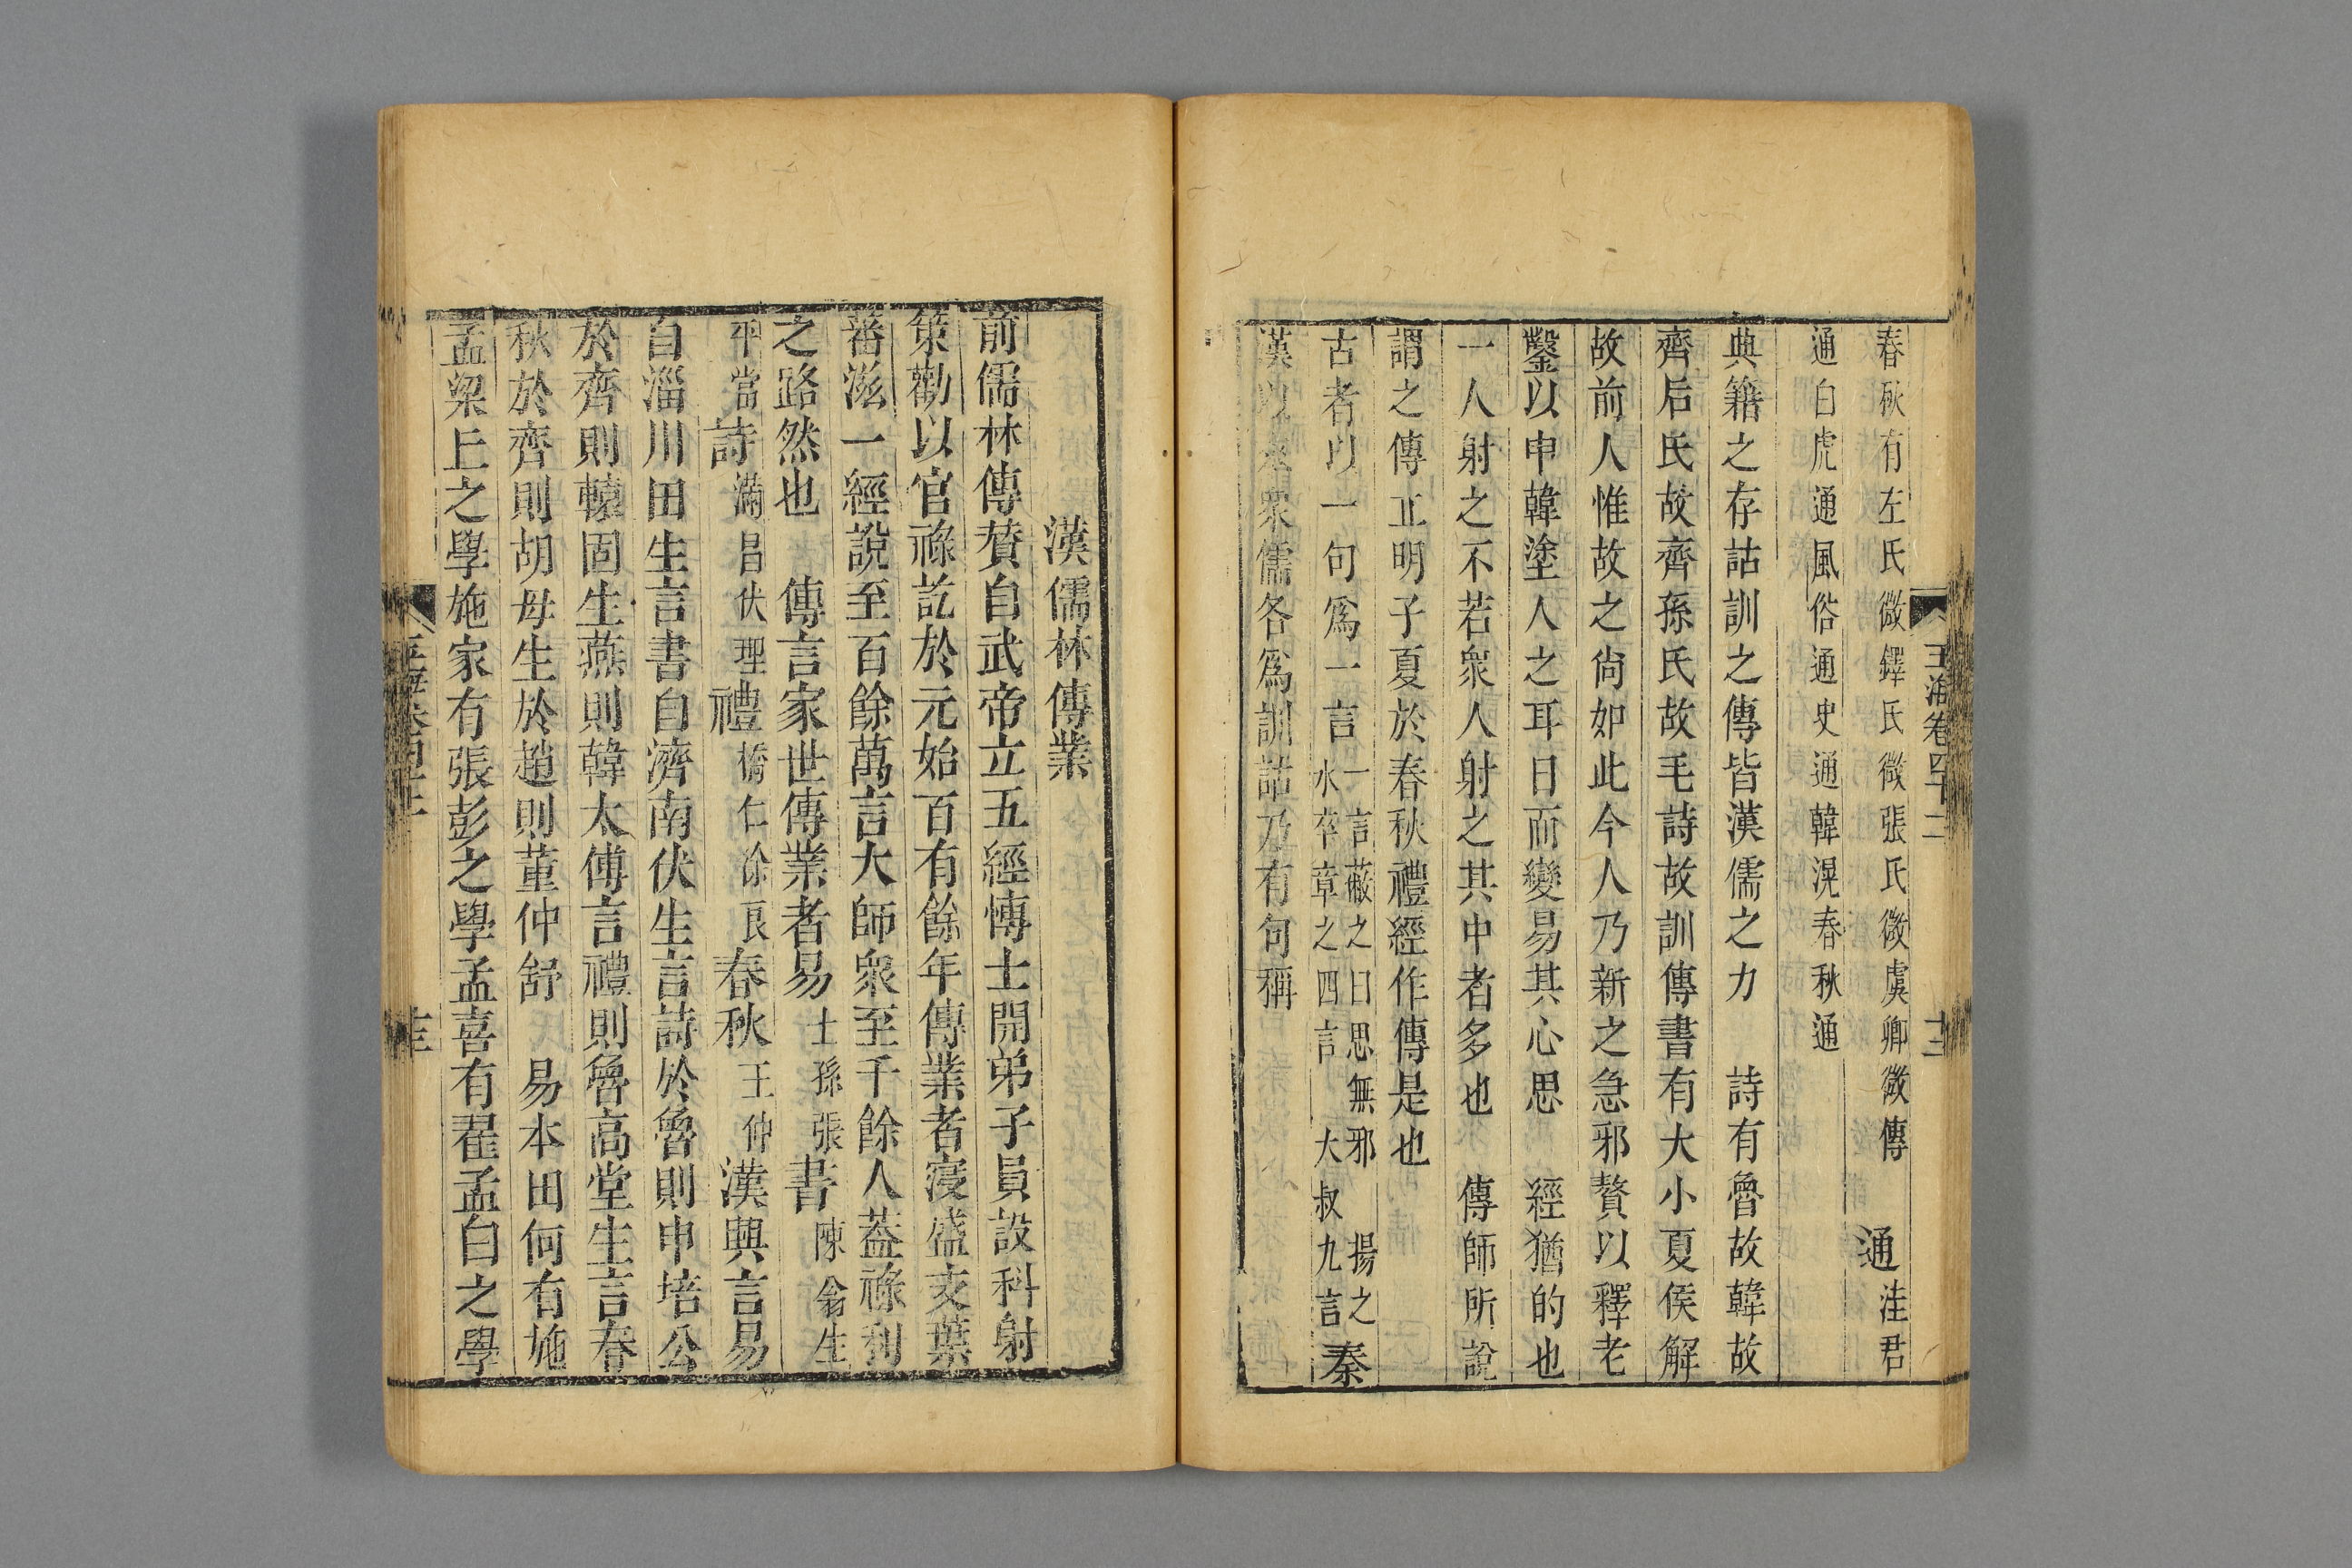 玉海卷四十二
十三
春秋有左氏微鐸氏微張氏微虞卿微傳　通洼君
通白虎通風俗通史通韓滉春秋通
典籍之存詁訓之傳皆漢儒之力　詩有魯故韓故
齊后氏故齊孫氏故毛詩故訓傳書有大小夏侯解
故前人惟故之尚如此今人乃新之急邪贅以釋老
鑿以申韓塗人之耳目而變易其心思　經猶的也
一人射之不若衆人射之其中者多也　傳師所說
謂之傳丘明子夏於春秋禮經作傳是也
古者以一句爲一言一言蔽之曰思無邪　揚之水卒章之四言　大叔九言秦
漢以來衆儒各爲訓詁乃有句稱
漢儒林傳業
前儒林傳贊自武帝立五經博士開弟子員設科射
策勸以官祿訖於元始百有餘年傳業者寖盛支葉
蕃滋一經說至百餘萬言大師衆至千餘人葢祿利
之路然也　傳言家世傳業者易士孫張書陳翁生
平當詩滿昌伏理禮橋仁徐良春秋王仲漢興言易
自淄川田生言書自濟南伏生言詩於魯則申培公
於齊則轅固生燕則韓太傅言禮則魯高堂生言春
秋於齊則胡母生於趙則董仲舒　易本田何有施
孟梁丘之學施家有張彭之學孟喜有翟孟白之學